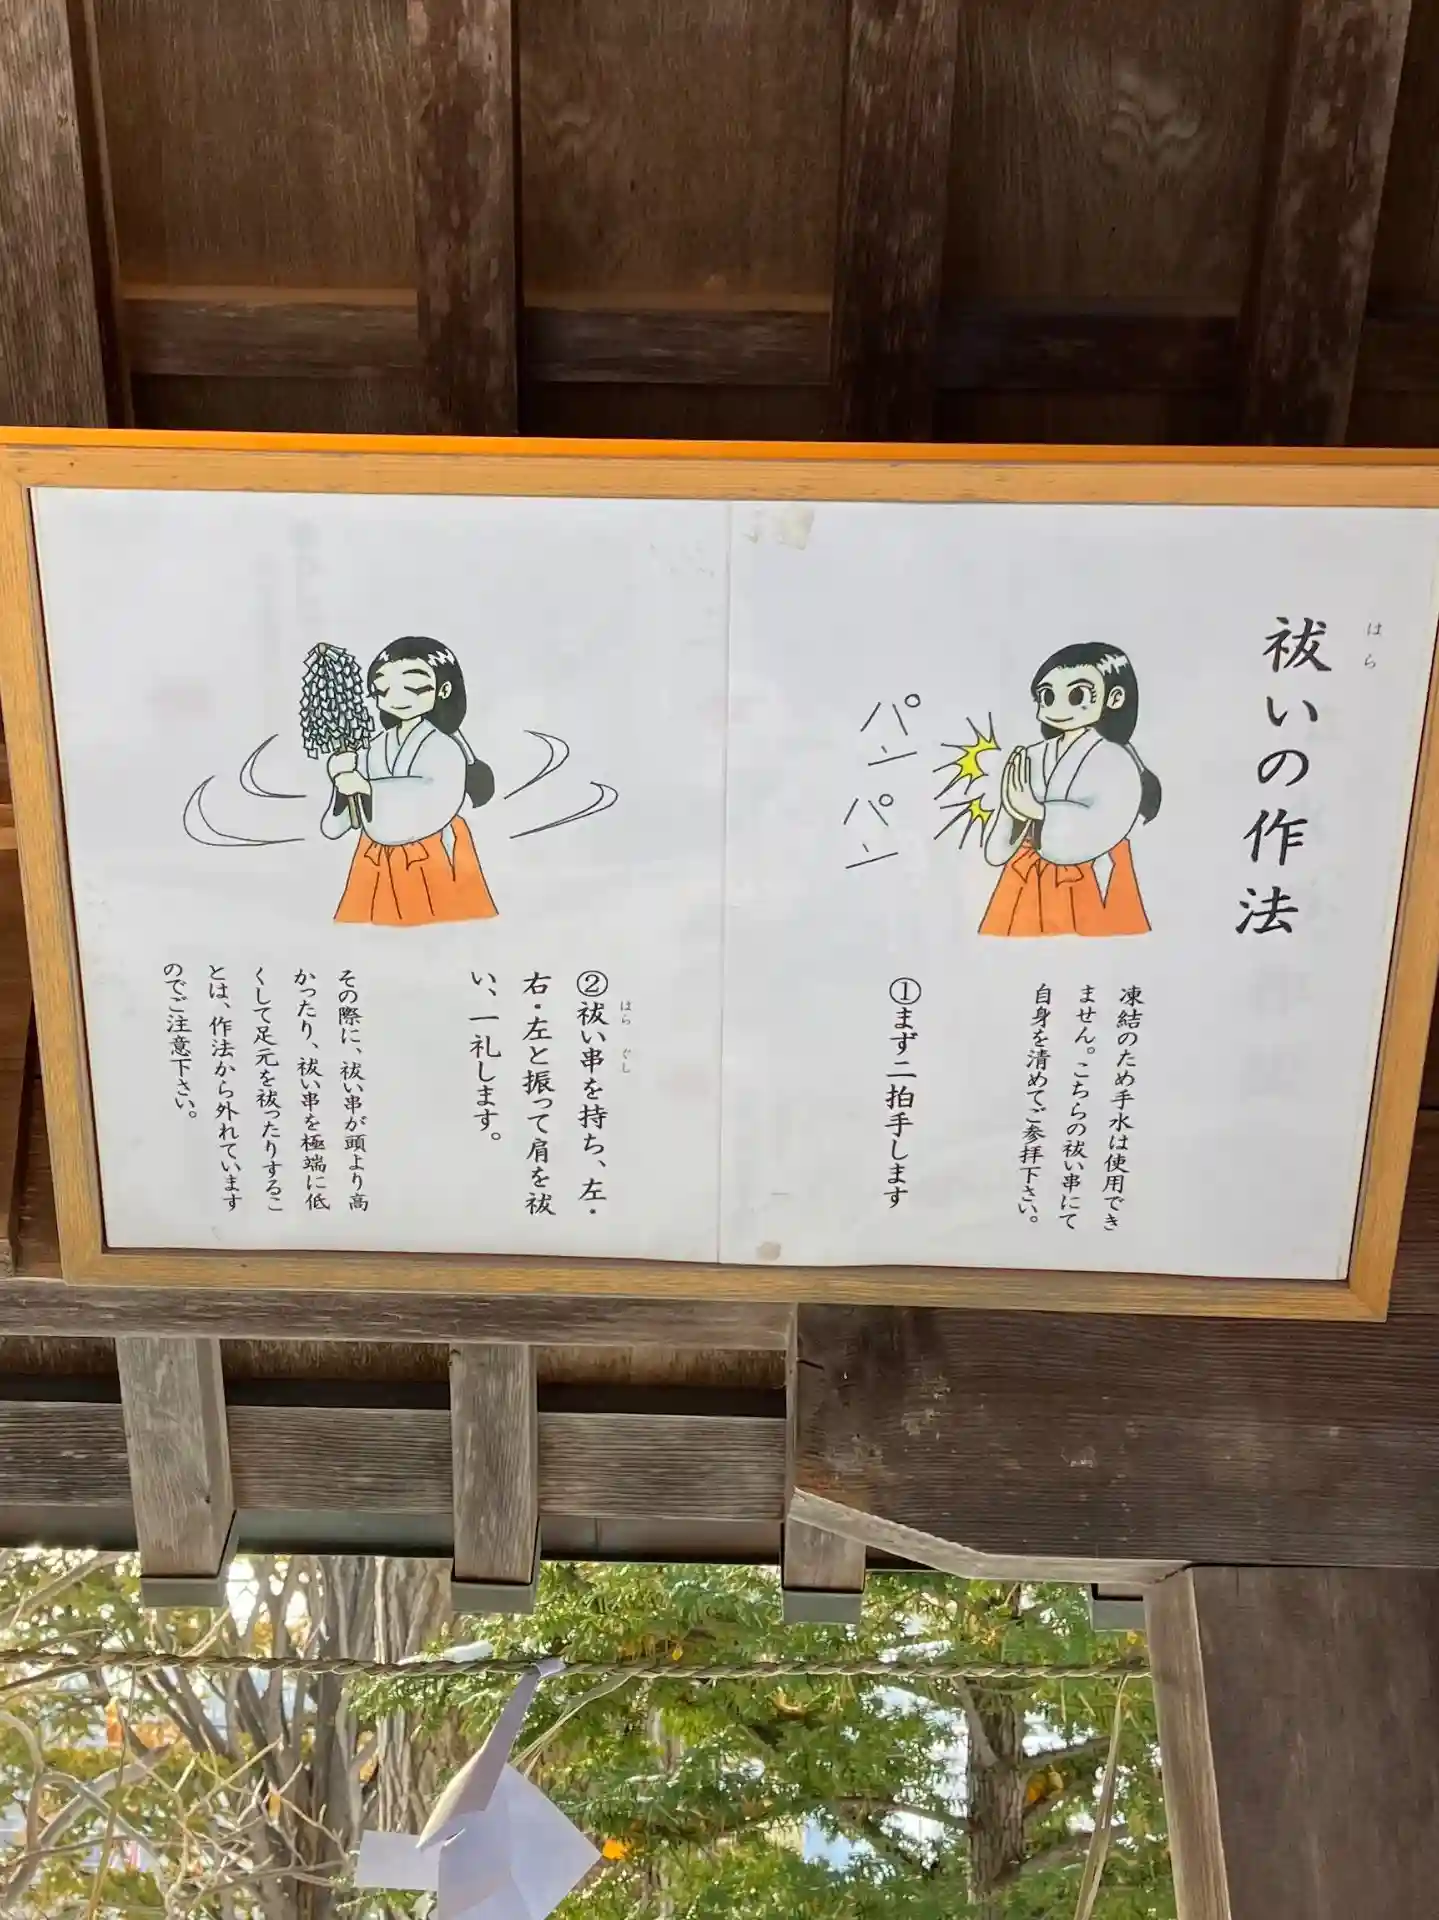 祓いの作法
はら
凍結のため手水は使用でき
ません。こちらの祓い串にて
自身を清めてご参拝下さい。
パン
パン
①まず二拍手します
②祓い串を持ち、左・
はら ぐし
右・左と振って肩を祓
い、一礼します。
その際に、祓い串が頭より高
かったり、祓い串を極端に低
くして足元を祓ったりするこ
とは、作法から外れています
のでご注意下さい。